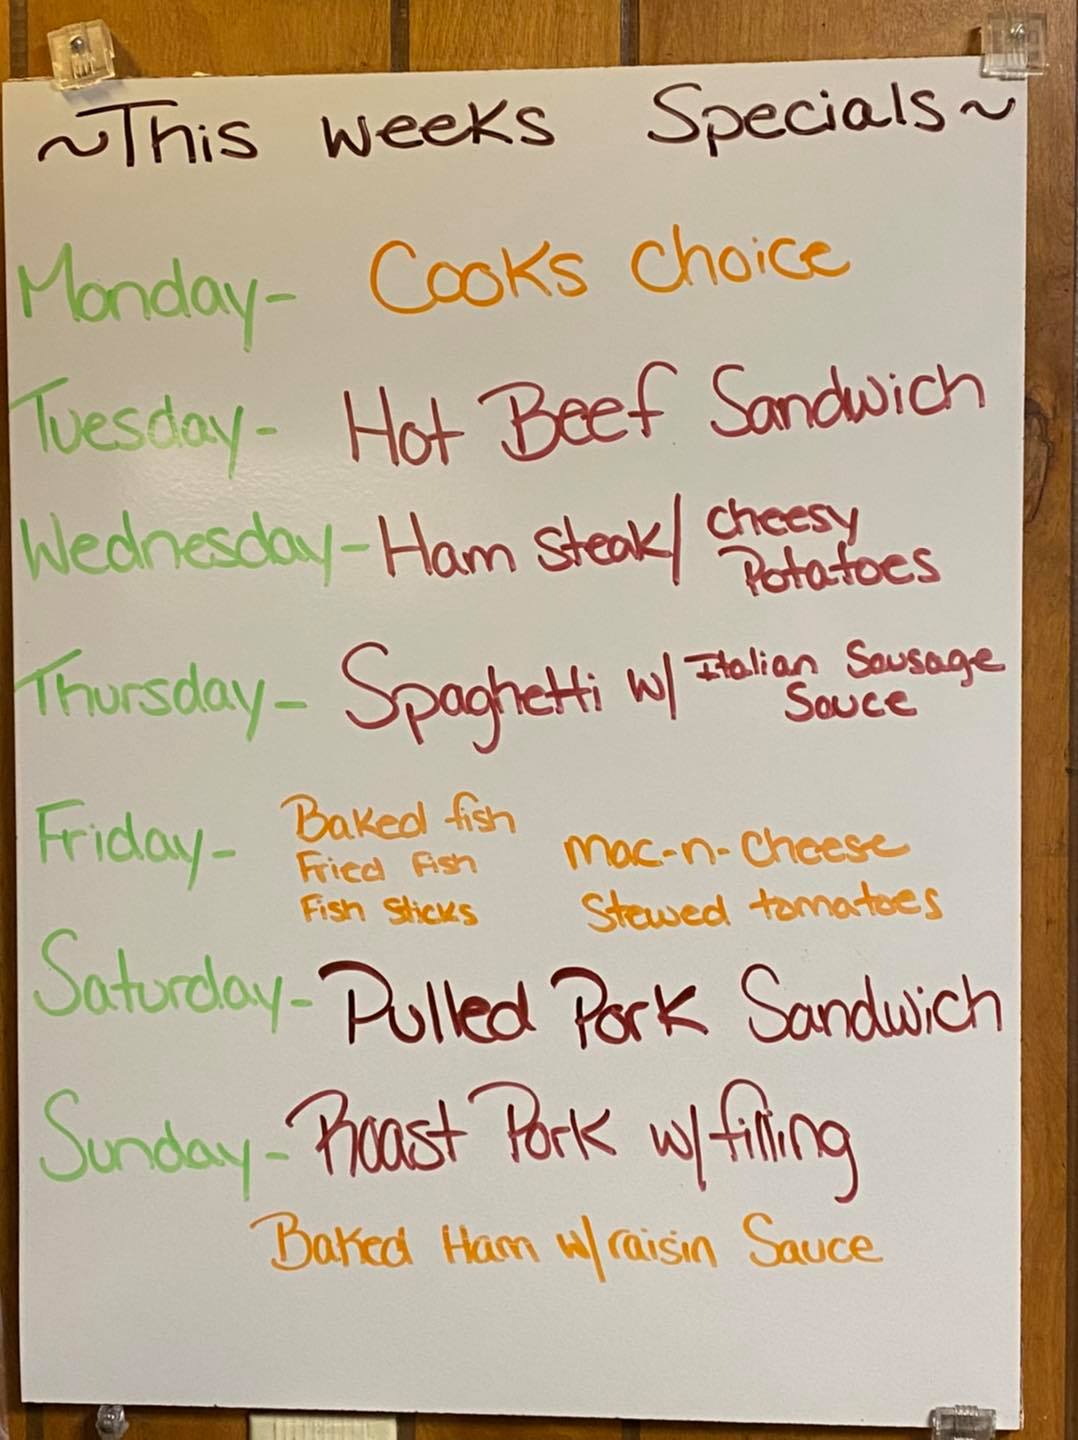 ~This weeks Specials~
Monday- Cooks choice
Tuesday- Hot Beef Sandwich
Wednesday- Ham steak/ cheesy
Potatoes
Thursday- Spaghetti w/ Italian Sausage
Sauce
Friday- Baked fish
Fried Fish mac-n-cheese
Fish Sticks Stewed tomatoes
Saturday- Pulled Pork Sandwich
Sunday- Roast Pork w/ filling
Baked Ham w/ raisin Sauce